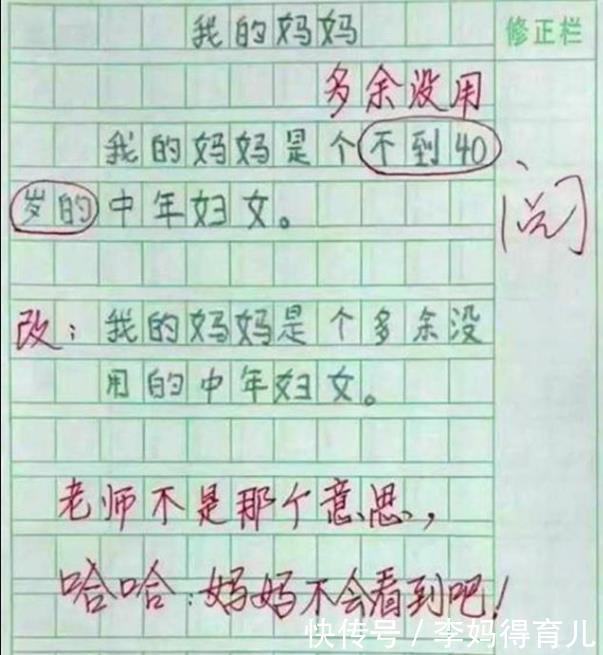 我的妈妈
修正栏
多余没用
我的妈妈是个不到40
岁的中年妇女。
阅
改：我的妈妈是个多余没
用的中年妇女。
老师不是那个意思，
哈哈：妈妈不会看到吧！
快传号/李妈得育儿